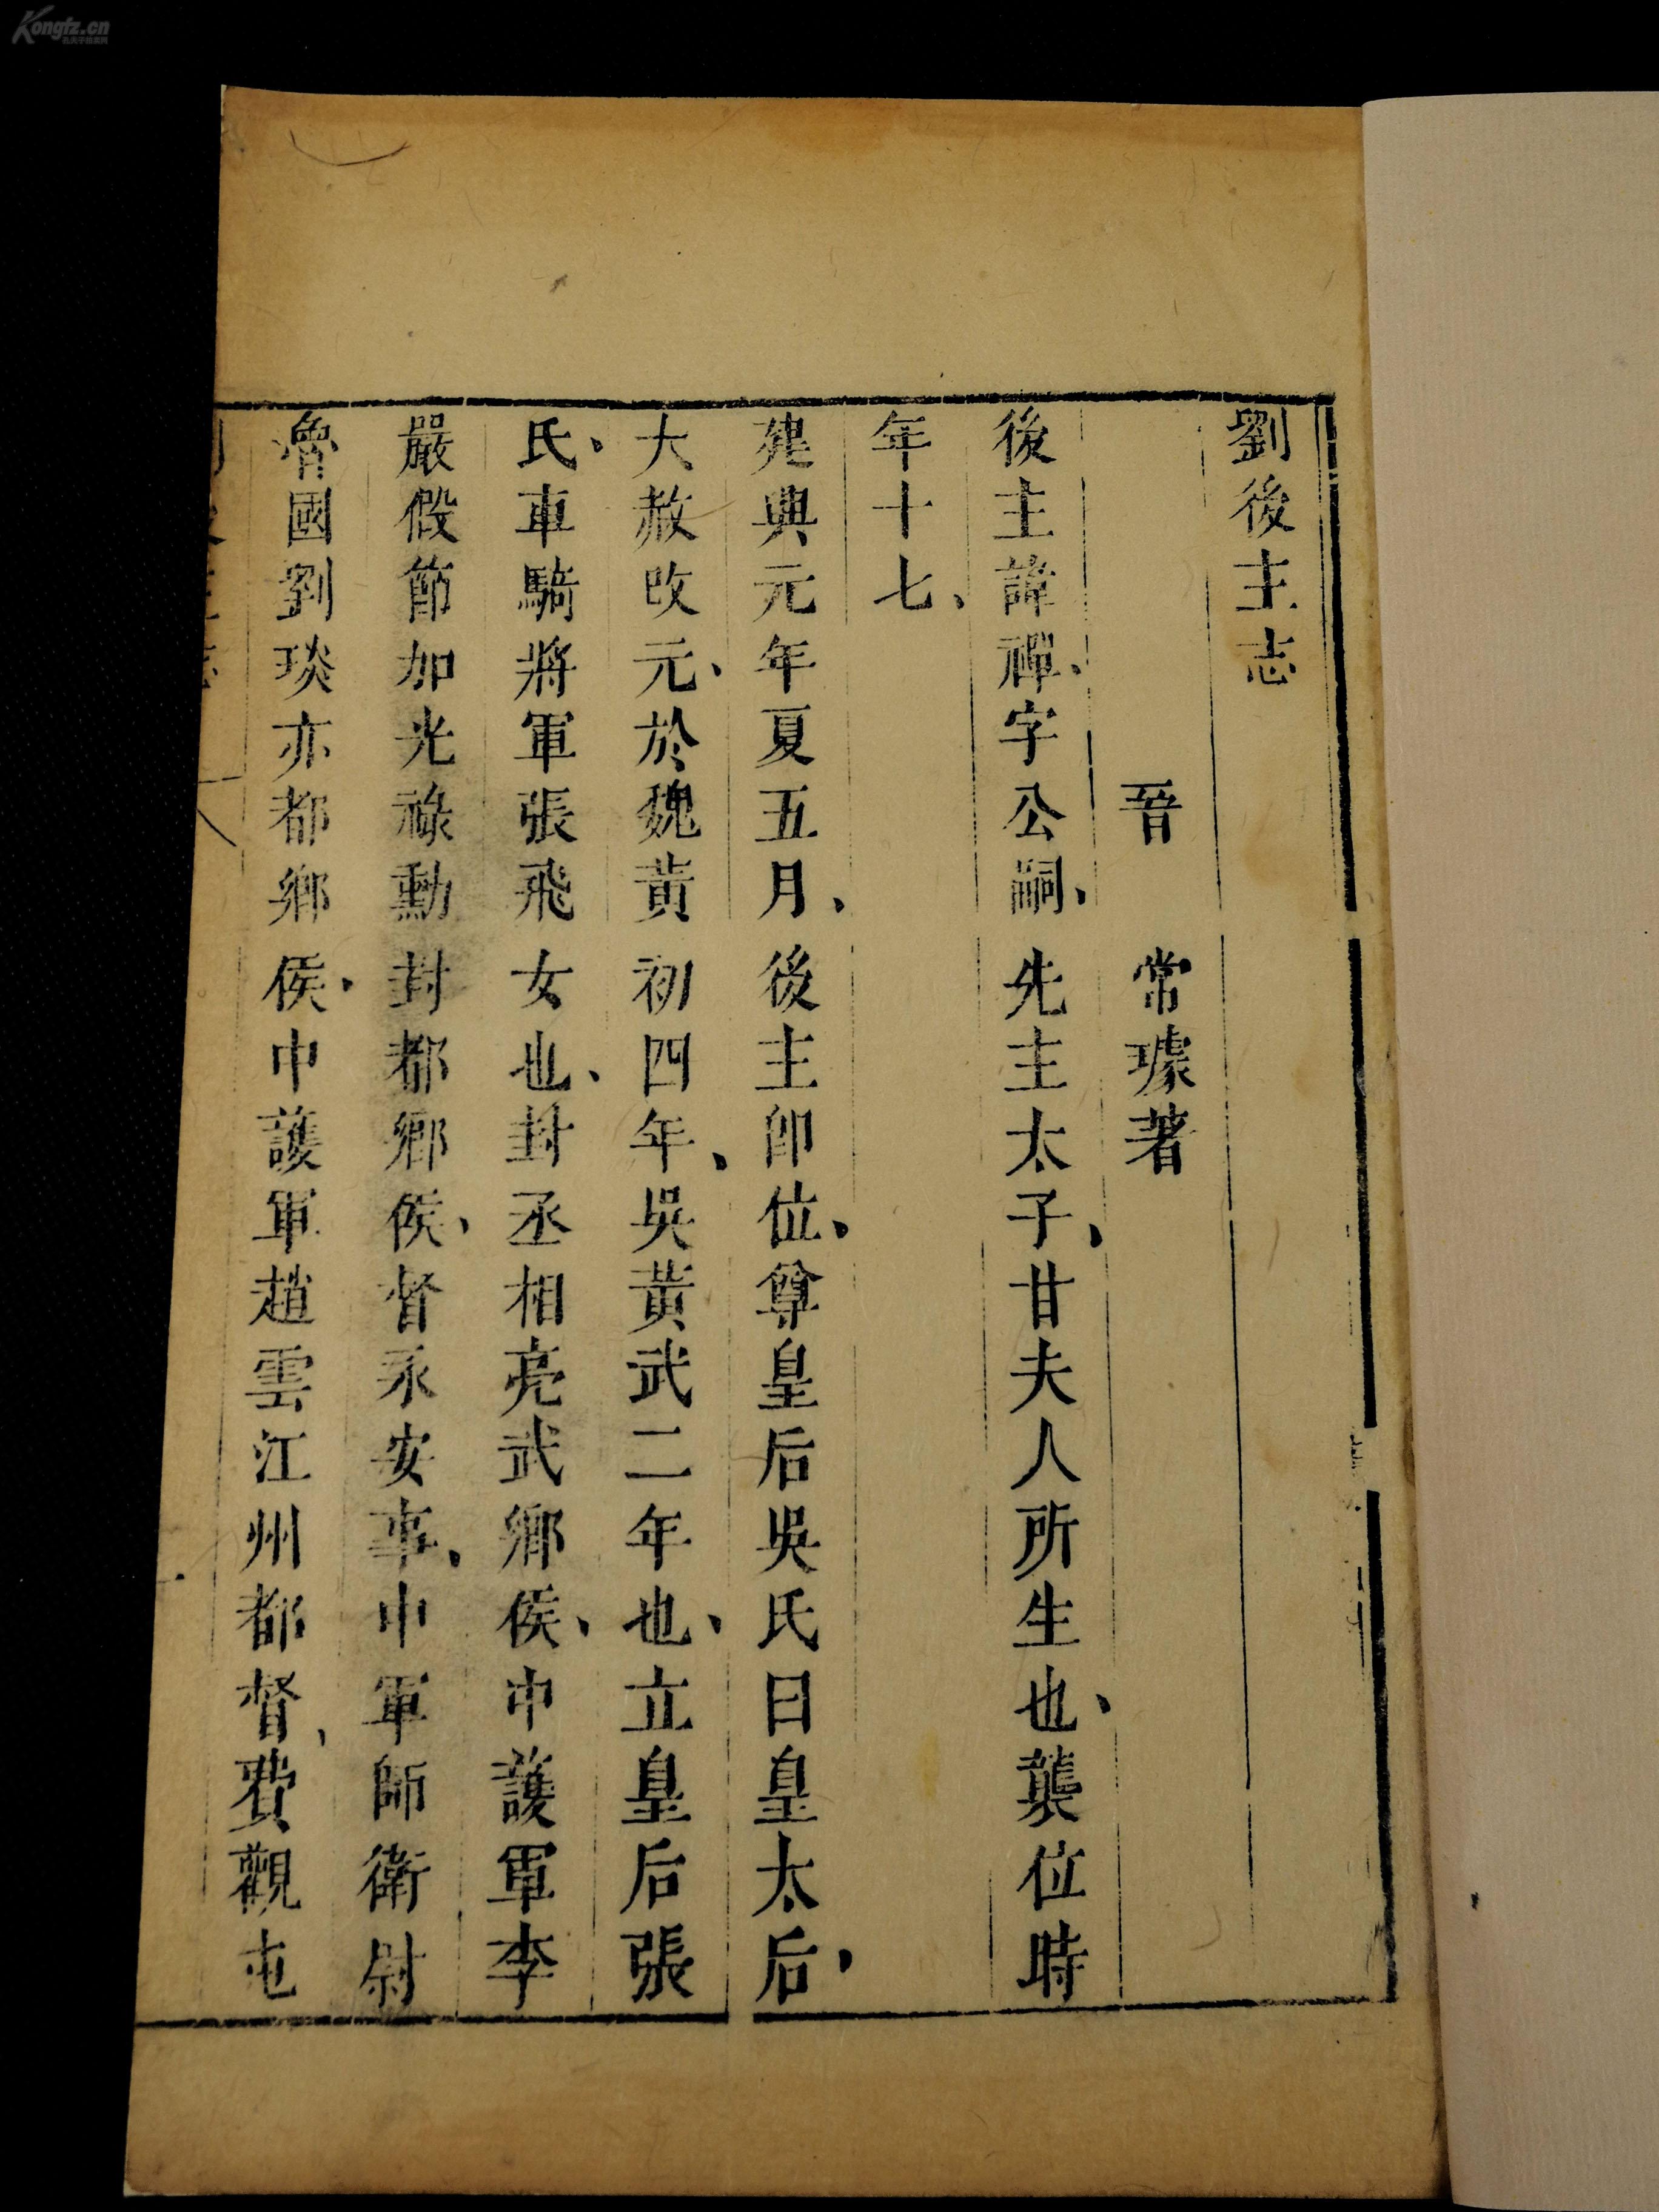 劉後主志
晉 常璩著
後主諱禪、字公嗣、先主太子、甘夫人所生也、襲位時
年十七、
建興元年夏五月、後主卽位、尊皇后吳氏曰皇太后、
大赦改元、於魏黃初四年、吳黃武二年也、立皇后張
氏、車騎將軍張飛女也、封丞相亮武鄉侯、中護軍李
嚴假節加光祿勳封都鄉侯、督永安事、中軍師衛尉
魯國劉琰亦都鄉侯、中護軍趙雲江州都督、費觀屯
Kongfz.cn